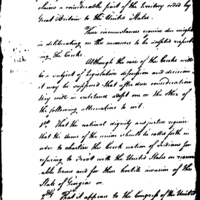 claims a considerable part of the territory ceded by
Great Britain to the United States.
These circumstances require due weight
in deliberating on the measures to be adopted respect-
ing the Creeks
Although the case of the Creeks will
be a subject of legislative discussion and decision
it may be supposed that after due consideration
they will in substance adopt one or the other of
the following alternatives to wit.
1st That the national dignity and justice require
that the arms of the union should be called forth in
order to chastise the Creek nation of Indians for
refusing to treat with the United States on reason-
able terms and for their hostile invasion of the
State of Georgia or
2dly That it appears to the Congress of the United